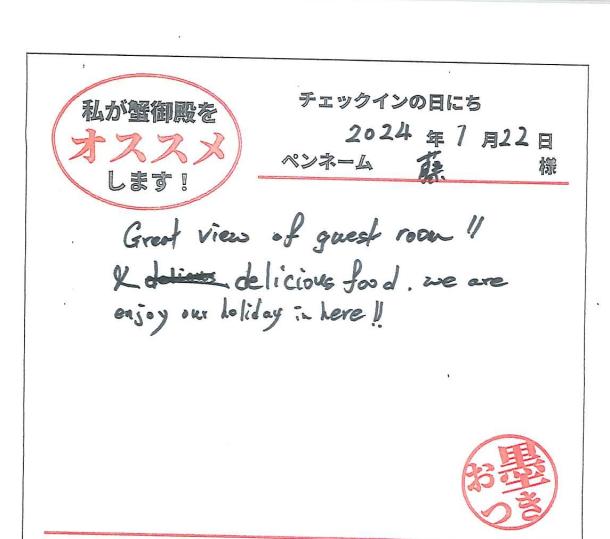 私が蟹御殿を
オススメ
します！
チェックインの日にち
2024 年 7 月 22 日
ペンネーム 藤 様
Great view of guest room !!
& delicious food. we are
enjoy our holiday in here !!
お墨
つき